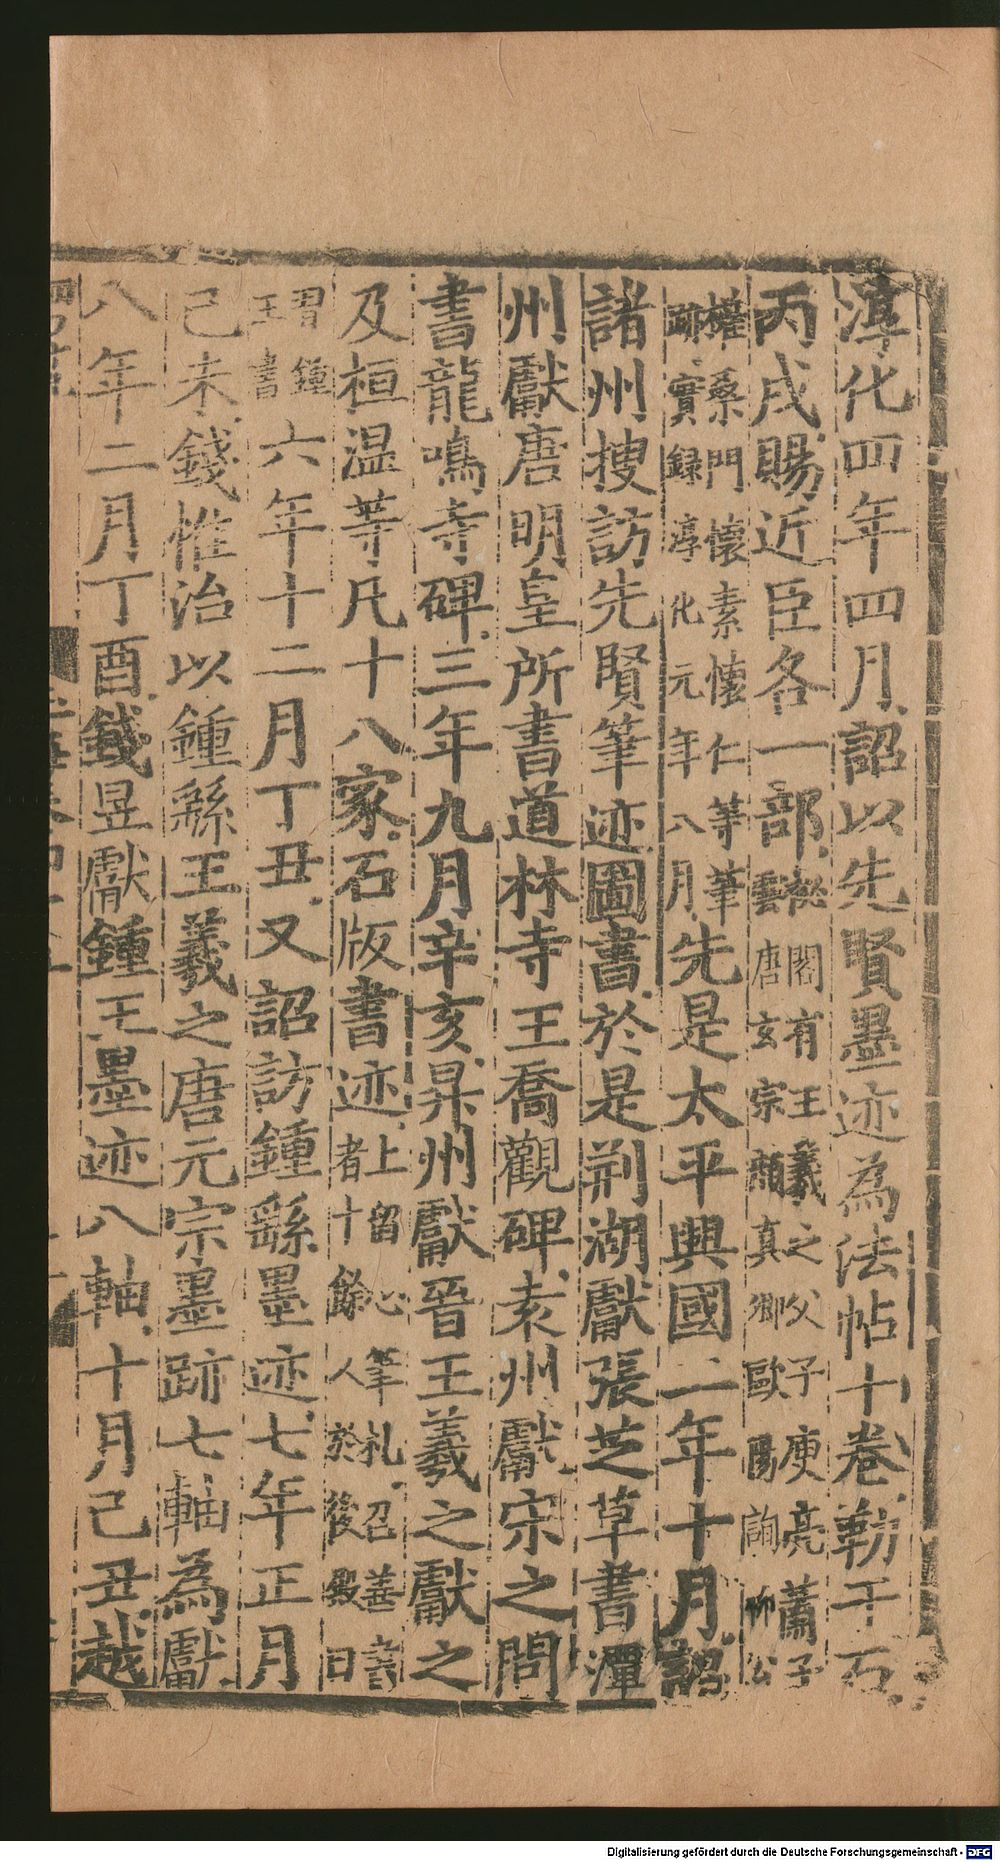 淳化四年四月詔以先賢墨迹為法帖十卷勒于石
丙戌賜近臣各一部秘閣有王羲之父子庾亮蕭子雲唐玄宗顔真卿歐陽詢柳公
權桑門懷素懷仁等筆跡實録淳化元年八月先是太平興國二年十月詔
諸州搜訪先賢筆迹圖書於是荆湖獻張芝草書潭
州獻唐明皇所書道林寺王喬觀碑袁州獻宋之問
書龍鳴寺碑三年九月辛亥昇州獻晉王羲之獻之
及桓温等凡十八家石版書迹上留心筆札召善書者十餘人於後殿日
習鍾王書六年十二月丁丑又詔訪鍾繇墨迹七年正月
己未錢惟治以鍾繇王羲之唐元宗墨跡七軸為獻
八年二月丁酉錢昱獻鍾王墨迹八軸十月己丑越
Digitalisierung gefördert durch die Deutsche Forschungsgemeinschaft - DFG